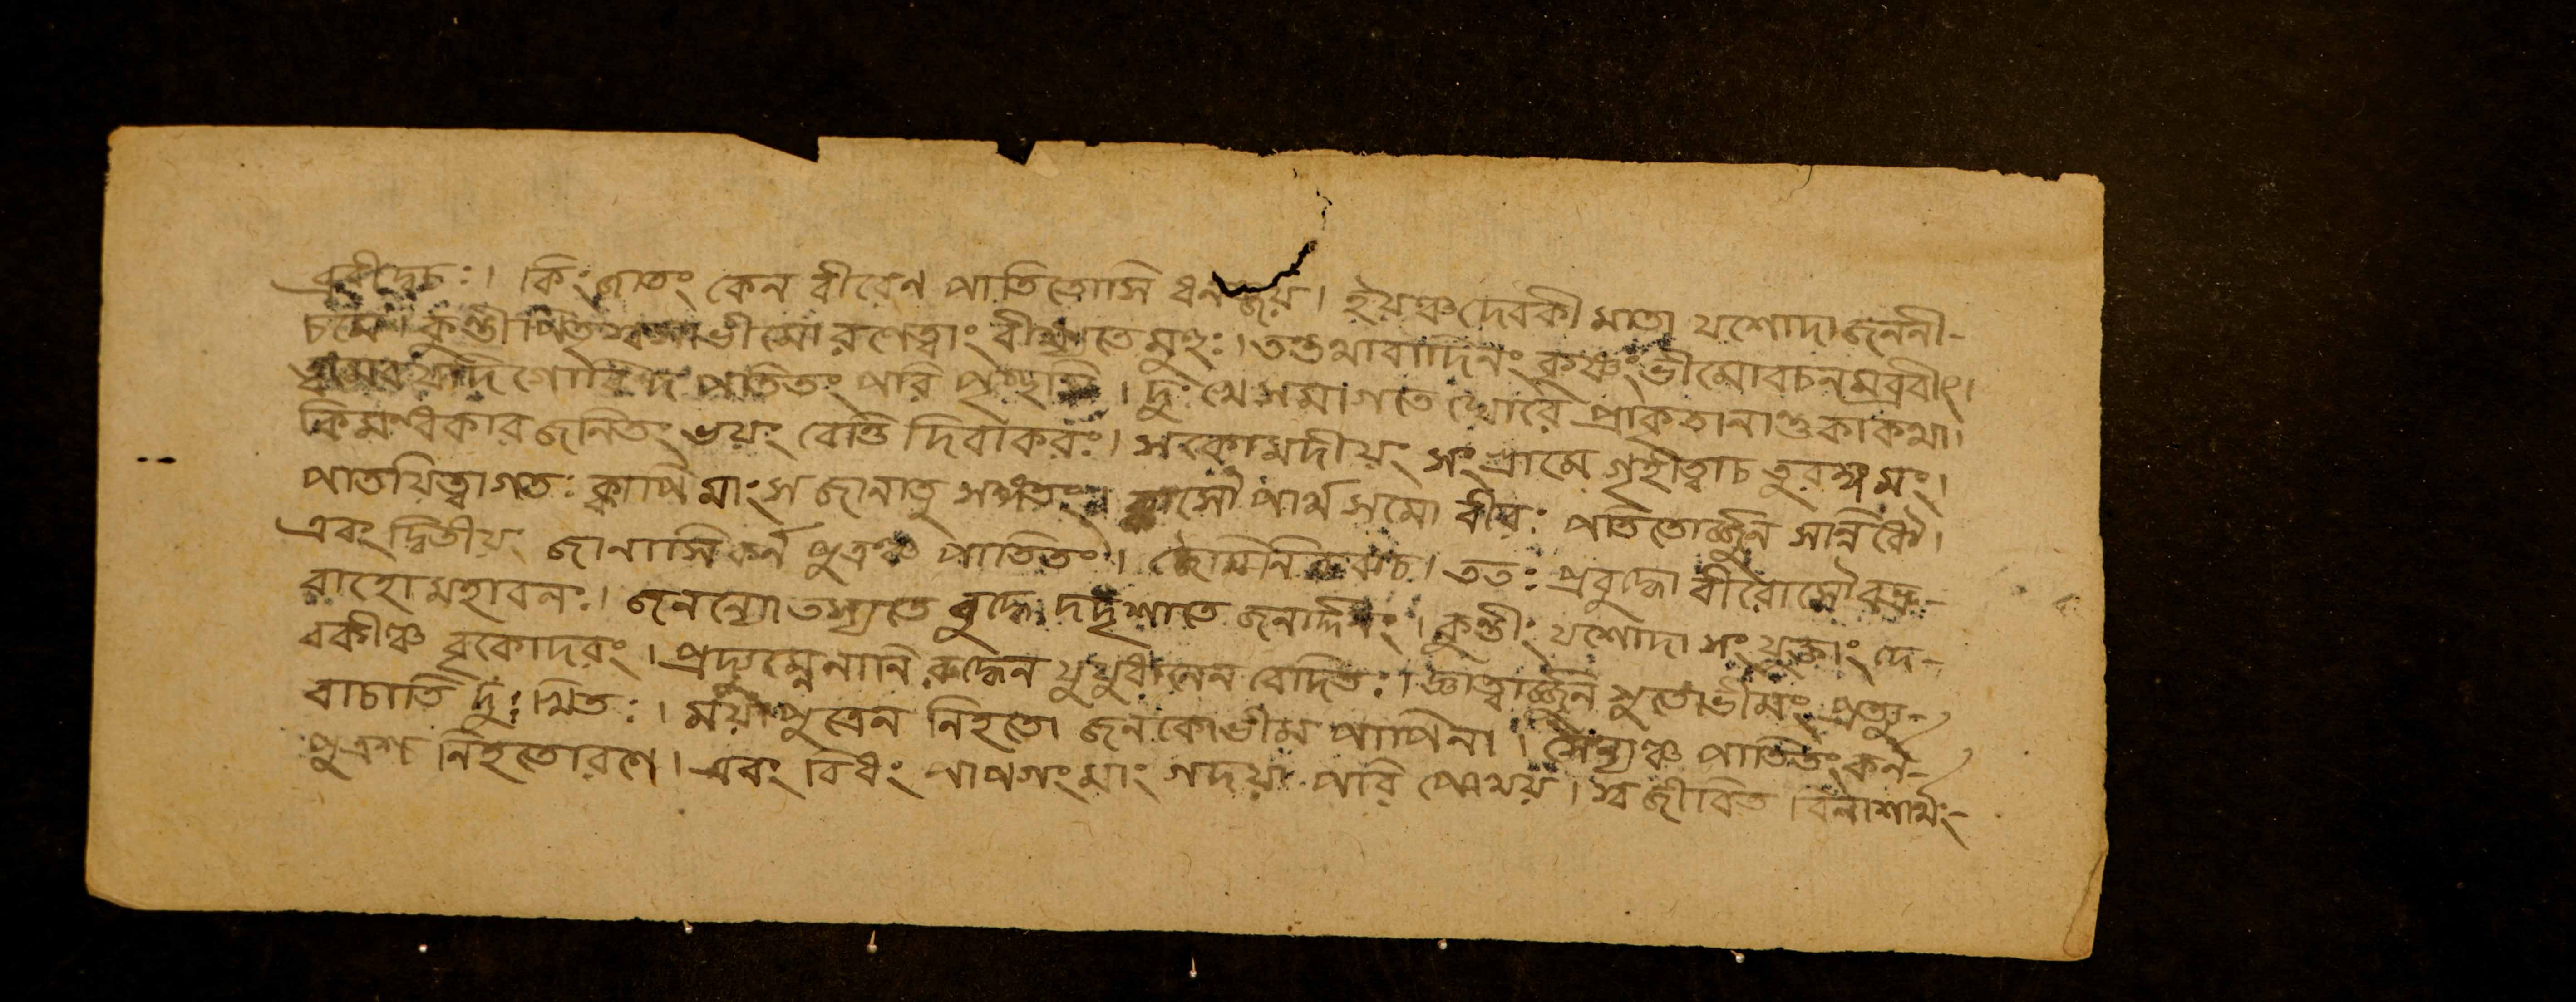 ব্রবীদ্বচঃ। কিং জাতং কেন বীরেণ পাতিতোসি ধনঞ্জয়। ইয়ঞ্চ দেবকী মাতা যশোদা জননী-
চমে। কুন্তী পিতৃস্বসা ভীমো রণেত্বাং বীক্ষ্যতে মুহুঃ। তন্তথাবাদিনং কৃষ্ণং ভীমোবচনমব্রবীৎ।
ত্বামেব যদি গোবিন্দ পতিতং পরি পৃচ্ছসি। দুঃখে সমাগতে ঘোরে প্রাকৃতানান্তু কাকথা।
কিমন্ধকার জনিতং ভয়ং বেত্তি দিবাকরঃ। সকোমদীয়ং সংগ্রামে গৃহীত্বাচ তুরঙ্গমং।
পাতয়িত্বাগতঃ ক্বাপি মাং স জানাতু সঙ্গতং। ক্বাসৌ পার্থ সমো বীরঃ পতিতোর্জ্জুন সন্নিধৌ।
এবং দ্বিতীয়ং জানাসি কর্ন পুত্রঞ্চ পাতিতং। জৈমিনিরুবাচ। ততঃ প্রবুদ্ধো বীরোসৌ বভ্রু-
বাহো মহাবলঃ। জনন্যৌ তস্যতে বুদ্ধে দদৃশাতে জনার্দ্দনং। কুন্তীং যশোদা সংযুক্তাং দে-
বকীঞ্চ বৃকোদরং। প্রদ্যুম্নেনানিরুদ্ধেন যুযুধানেন বেদিতঃ। জ্ঞাত্বার্জ্জুন সুতোভীমং প্রত্যু-
বাচাতি দুঃখিতঃ। ময়া পুত্রেন নিহতো জনকোভীম পাপিনা। সৈন্যঞ্চ পাতিতং কর্ন-
পুত্রশ্চ নিহতোরণে। এবং বিধং পাপগং মাং গদয়া পরি পোথয়। স্বজীবিত বিনাশার্থং-